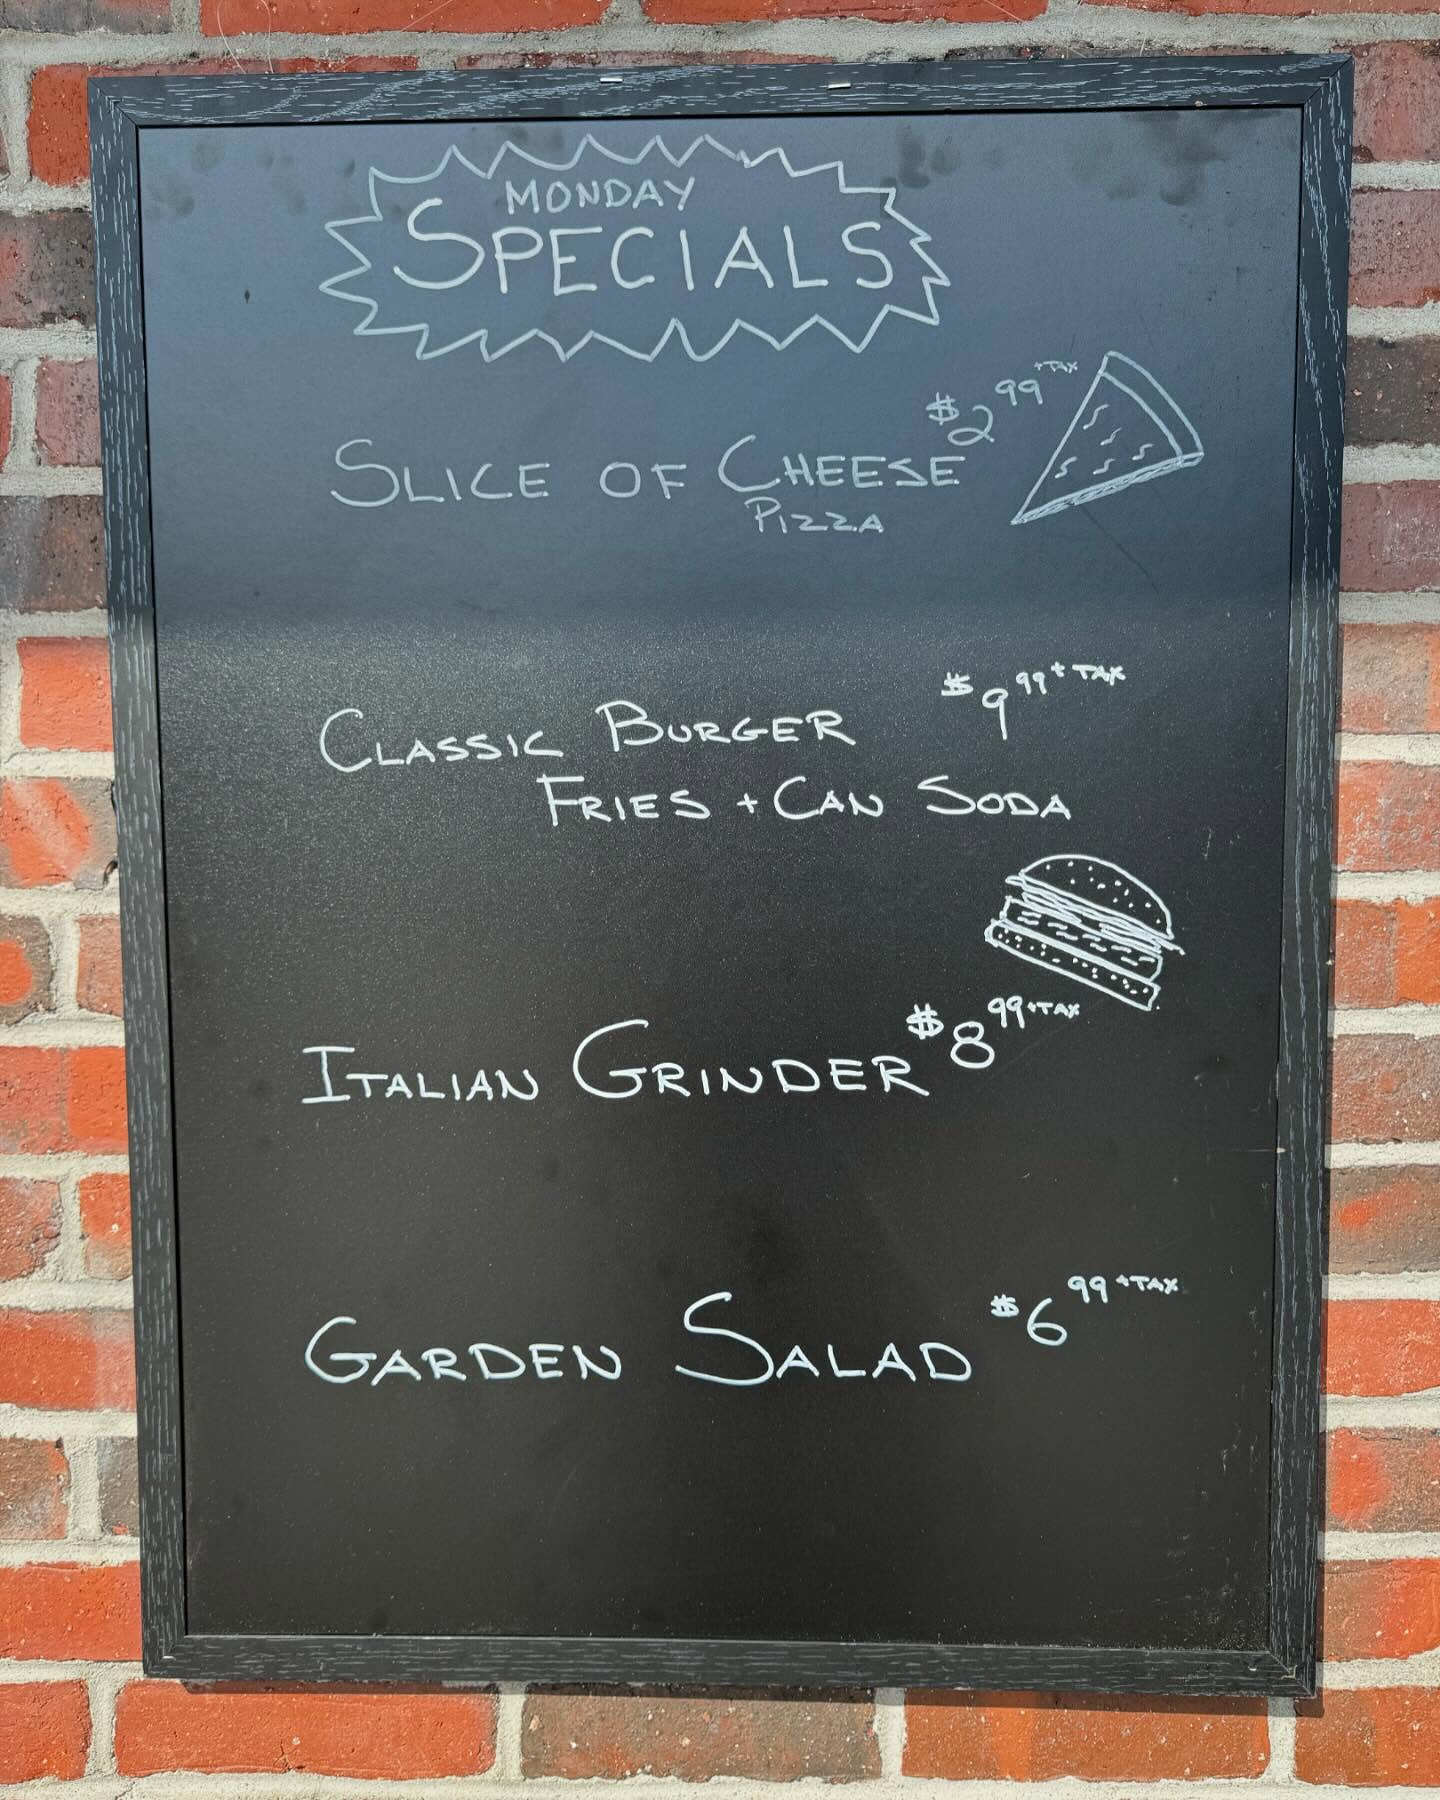 MONDAY
SPECIALS
$2.99 +TAX
SLICE OF CHEESE
PIZZA
$9.99 + TAX
CLASSIC BURGER
FRIES + CAN SODA
$8.99 +TAX
ITALIAN GRINDER
$6.99 +TAX
GARDEN SALAD